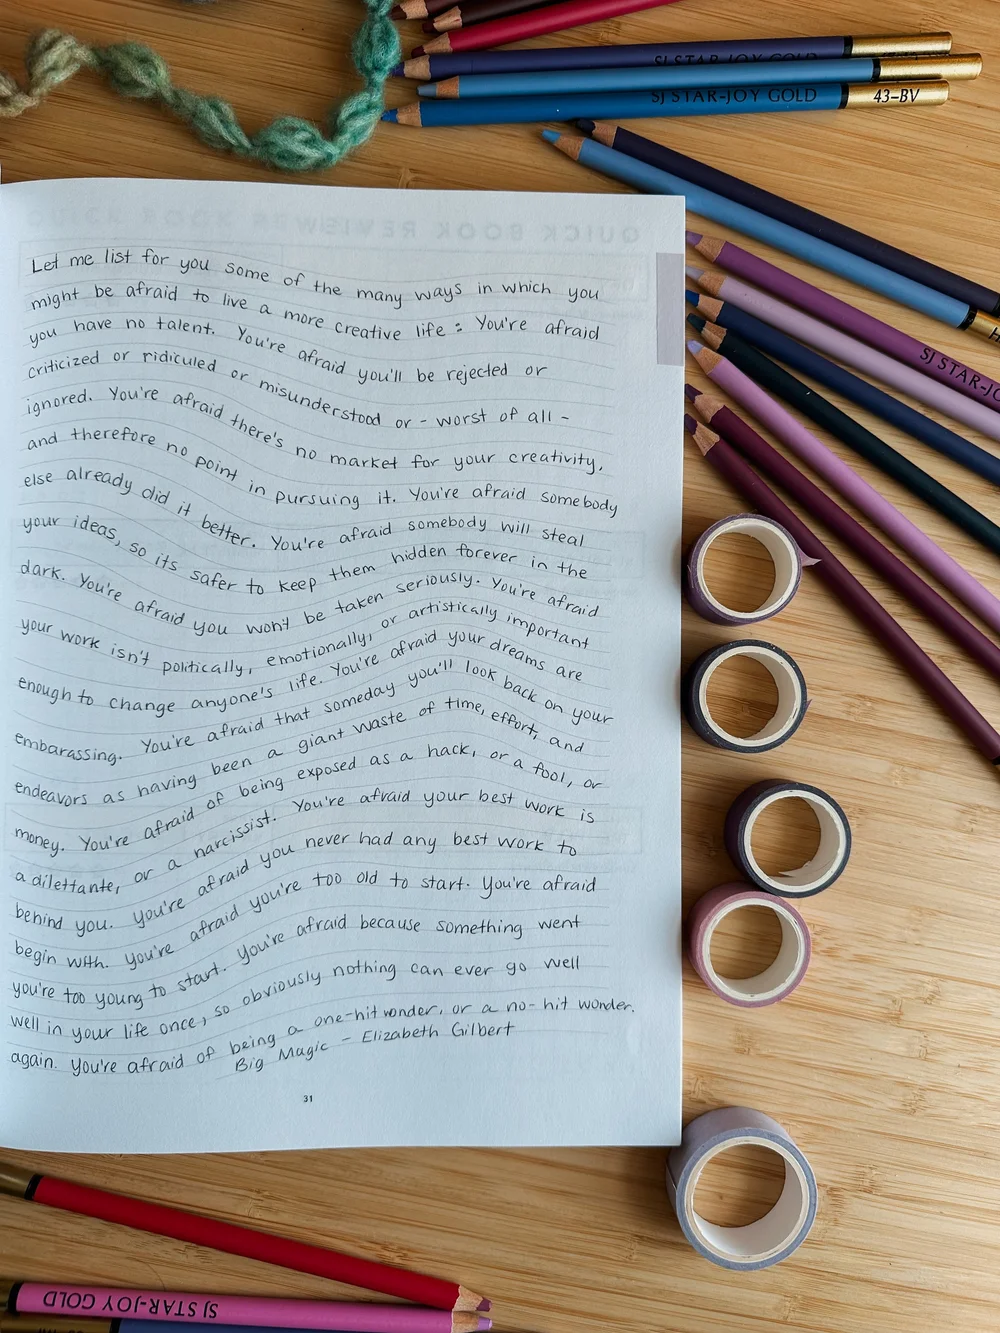 SJ STAR-JOY GOLD
SJ STAR-JOY GOLD 43-BV
QUICK BOOK REVIEW
Let me list for you some of the many ways in which you
might be afraid to live a more creative life : You're afraid
you have no talent. You're afraid you'll be rejected or
criticized or ridiculed or misunderstood or - worst of all -
ignored. You're afraid there's no market for your creativity,
and therefore no point in pursuing it. You're afraid somebody
else already did it better. You're afraid somebody will steal
your ideas, so its safer to keep them hidden forever in the
dark. You're afraid you won't be taken seriously. You're afraid
your work isn't politically, emotionally, or artistically important
enough to change anyone's life. You're afraid your dreams are
embarassing. You're afraid that someday you'll look back on your
endeavors as having been a giant waste of time, effort, and
money. You're afraid of being exposed as a hack, or a fool, or
a dilettante, or a narcissist. You're afraid your best work is
behind you. You're afraid you never had any best work to
begin with. You're afraid you're too old to start. You're afraid
you're too young to start. You're afraid because something went
well in your life once, so obviously nothing can ever go well
again. You're afraid of being a one-hit wonder, or a no-hit wonder.
Big Magic - Elizabeth Gilbert
31
SJ STAR-JO
SJ STAR-JOY GOLD